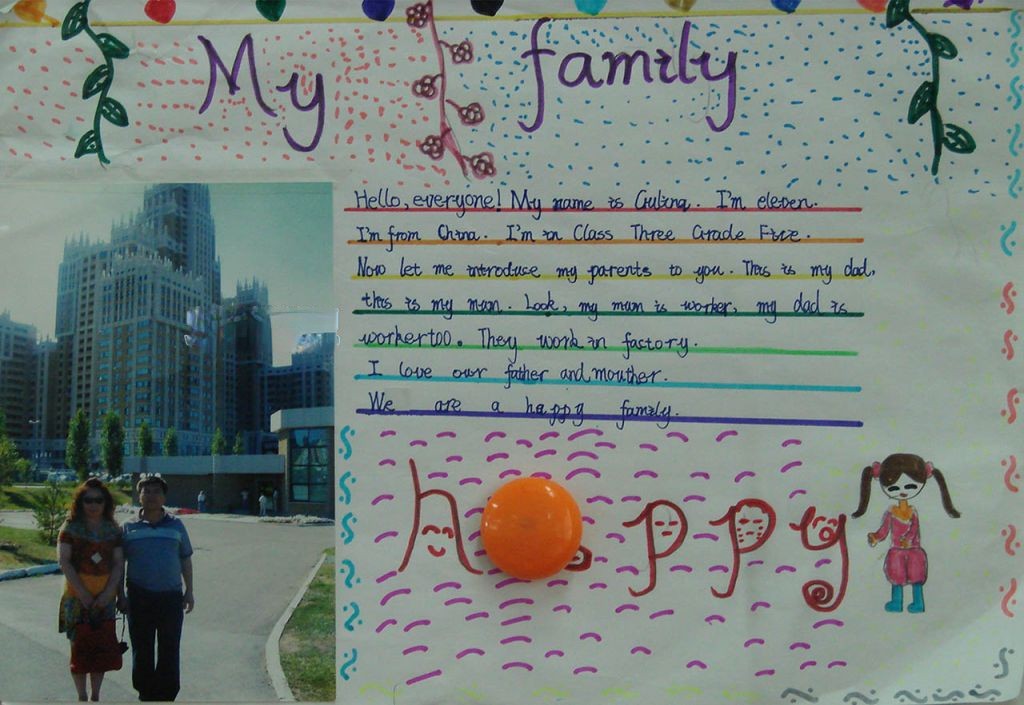 My family
Hello, everyone! My name is Gulina. I'm eleven.
I'm from China. I'm in Class Three Grade Five.
Now let me introduce my parents to you. This is my dad,
this is my mum. Look, my mum is worker, my dad is
workertoo. They work in factory.
I love our father and mouther.
We are a happy family.
h ppy